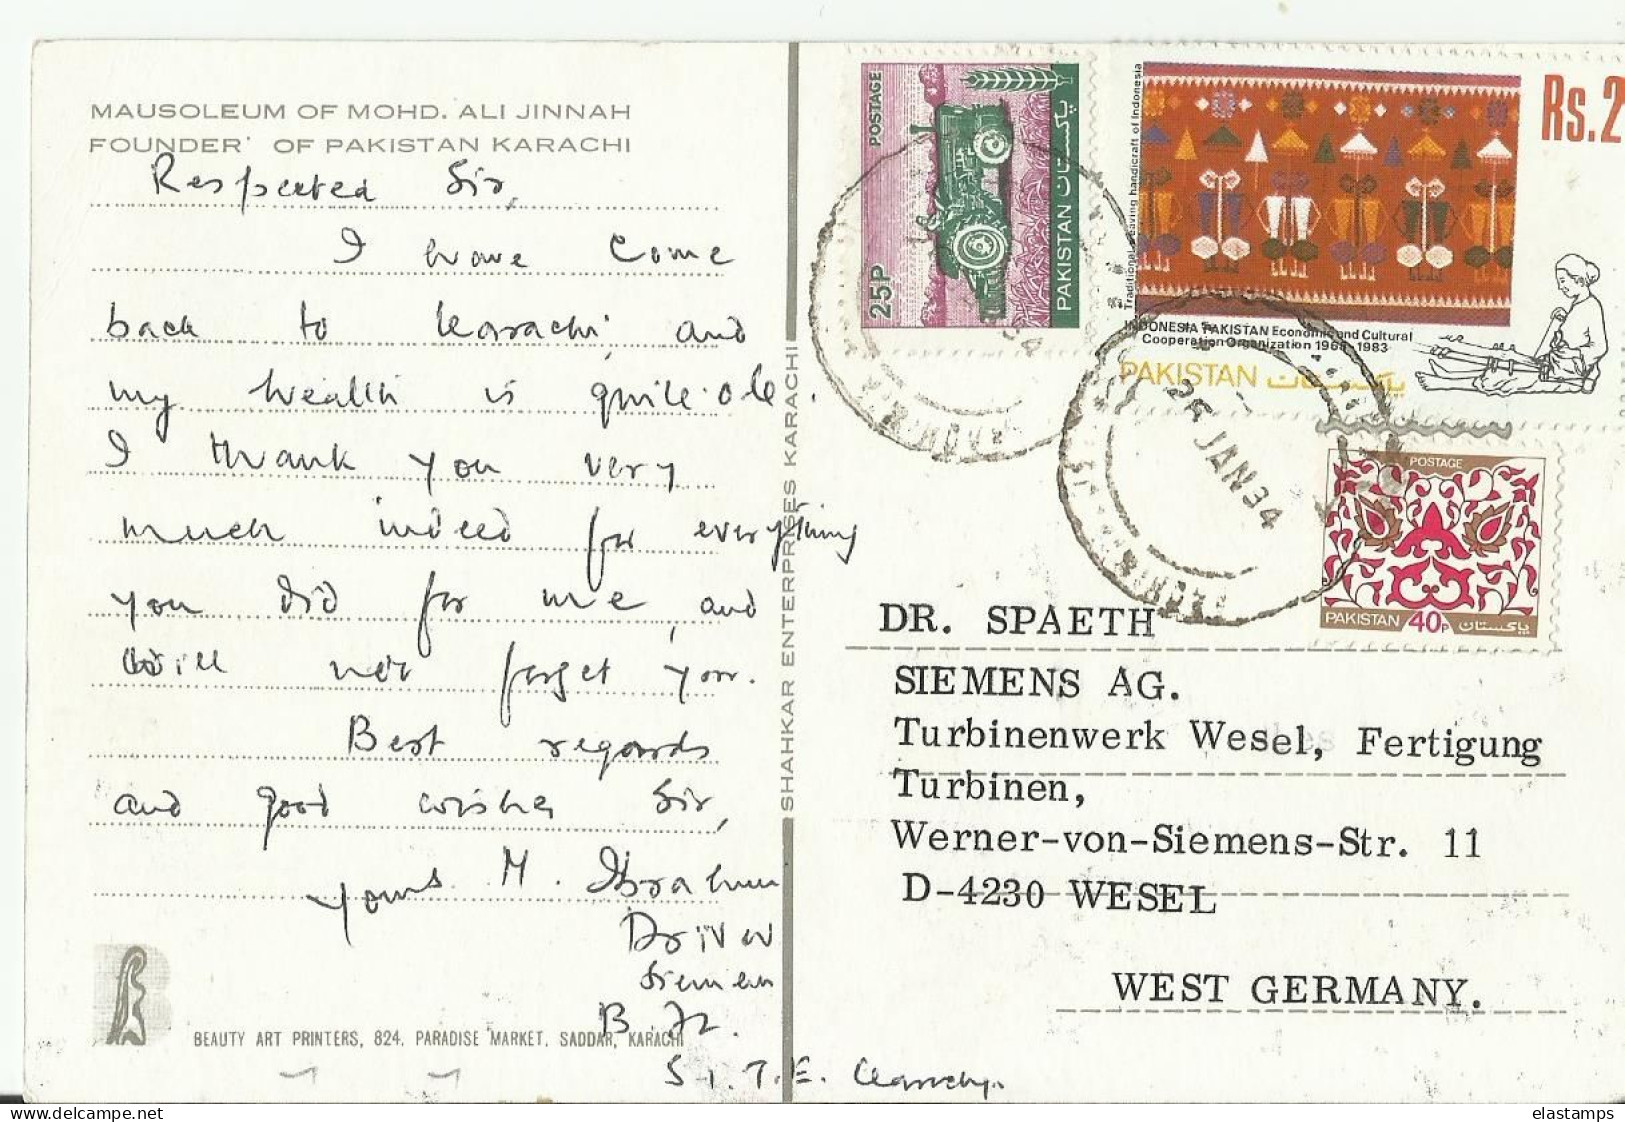 MAUSOLEUM OF MOHD. ALI JINNAH
FOUNDER OF PAKISTAN KARACHI
Respected Sir,
I have come
back to Karachi and
my health is quite ok.
I thank you very
much indeed for everything
you did for me, and
will not forget you.
Best regards
and good wishes Sir,
yours M. Ibrahim
Driver
Siemens
S.I.T.E. Karachi.
BEAUTY ART PRINTERS, 824, PARADISE MARKET, SADDAR, KARACHI
SHAHKAR ENTERPRISES KARACHI
POSTAGE
25P
PAKISTAN پاکستان
Traditional weaving handicraft of Indonesia
Rs.2
INDONESIA PAKISTAN Economic and Cultural
Cooperation Organization 1968-1983
PAKISTAN پاکستان
JAN
POSTAGE
PAKISTAN 40P پاکستان
DR. SPAETH
SIEMENS AG.
Turbinenwerk Wesel, Fertigung
Turbinen,
Werner-von-Siemens-Str. 11
D-4230 WESEL
WEST GERMANY.
elastamps